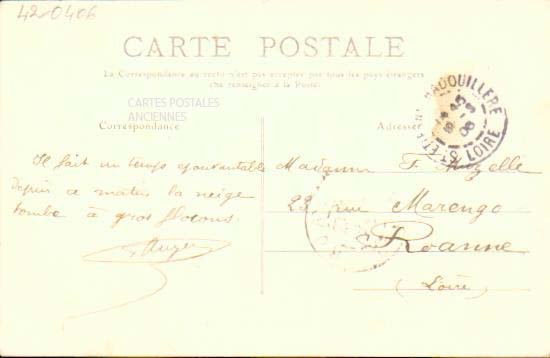 42-0406
CARTE POSTALE
La Correspondance au recto n'est pas acceptée par tous les pays étrangers
(Se renseigner à la Poste)
CARTES POSTALES
ANCIENNES
Correspondance
Adresse
BADOUILLÈRE
LOIRE
Il fait un temps épouvantable
Depuis ce matin la neige
tombe à gros flocons
Madame F.
23, rue Marengo
Roanne
(Loire)